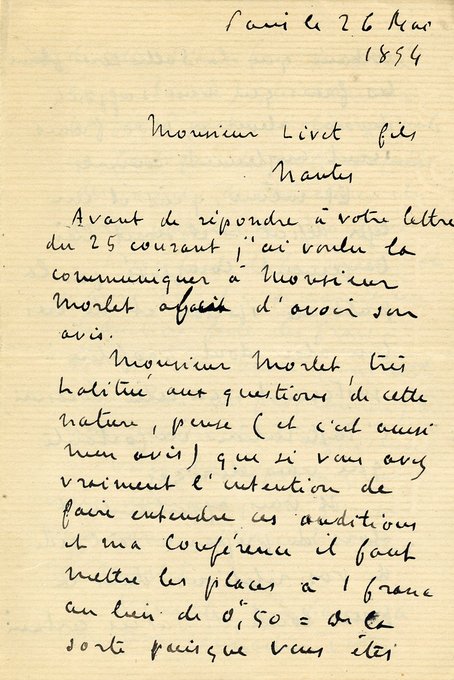 Paris le 26 Mai
1894
Monsieur Livet fils
Nantes
Avant de répondre à votre lettre
du 25 courant, j'ai voulu la
communiquer à Monsieur
Morlet afin d'avoir son
avis.
Monsieur Morlet, très
habitué aux questions de cette
nature, pense (et c'est aussi
mon avis) que si vous avez
vraiment l'intention de
faire entendre ces auditions
et ma conférence il faut
mettre les places à 1 franc
au lieu de 0f,50 = de la
sorte puisque vous êtes